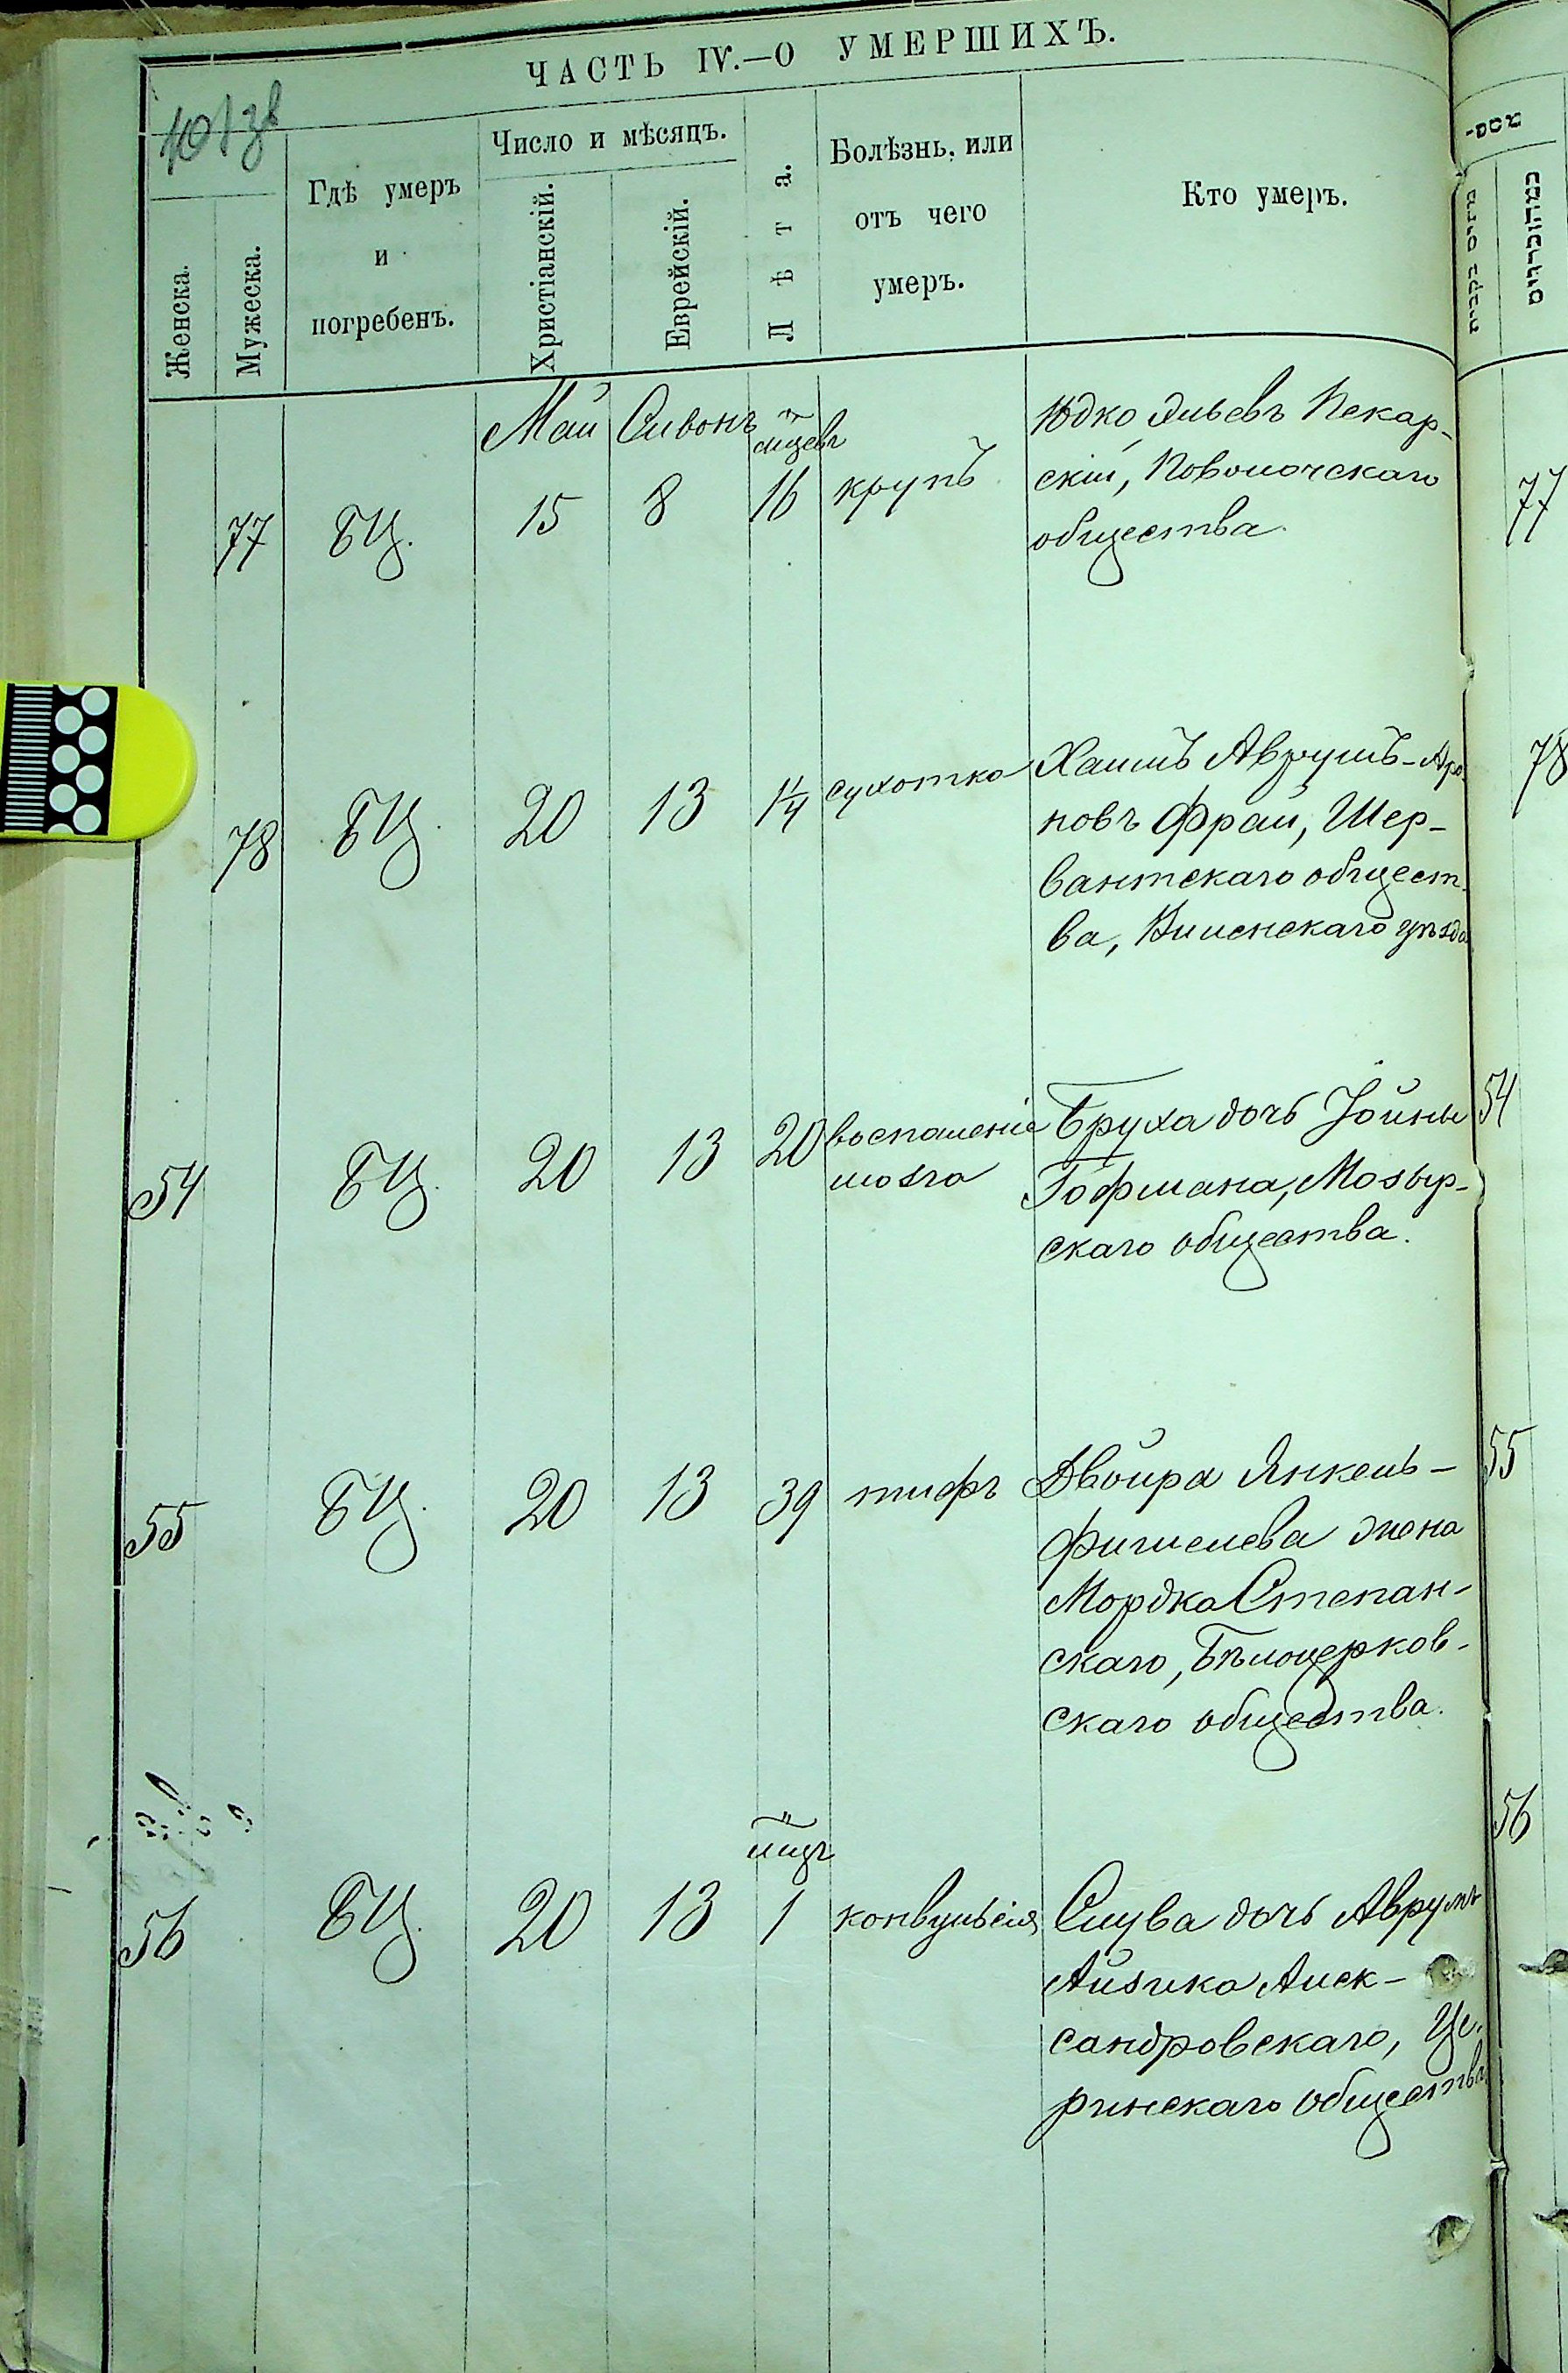 ЧАСТЬ IV.—О УМЕРШИХЪ.
Женска.
Мужеска.
Гдѣ умеръ
и
погребенъ.
Число и мѣсяцъ.
Христіанскій.
Еврейскій.
Лѣта.
Болѣзнь, или
отъ чего
умеръ.
Кто умеръ.
Май Сивонъ мцевъ
77 БЦ. 15 8 16 крупъ
Юдко Эльевъ Пекар-
скій, Поволочскаго
общества.
77
78 БЦ. 20 13 1¼ сухотка
Хаимъ Аврумъ-Аро-
новъ Фрай, Шер-
вантскаго общест-
ва, Виленскаго уѣзда
78
54 БЦ. 20 13 20 воспаленіе
мозга
Бруха дочь Іойны
Гофмана, Мозыр-
скаго общества.
54
55 БЦ. 20 13 39 тифъ
Двойра Янкель-
Фишелева жена
Мордка Степан-
скаго, Бѣлоцерков-
скаго общества.
55
мцъ
56 БЦ. 20 13 1 конвульсія
Слува дочь Аврумъ
Айзика Алек-
сандровскаго, Це-
ринскаго общества
56